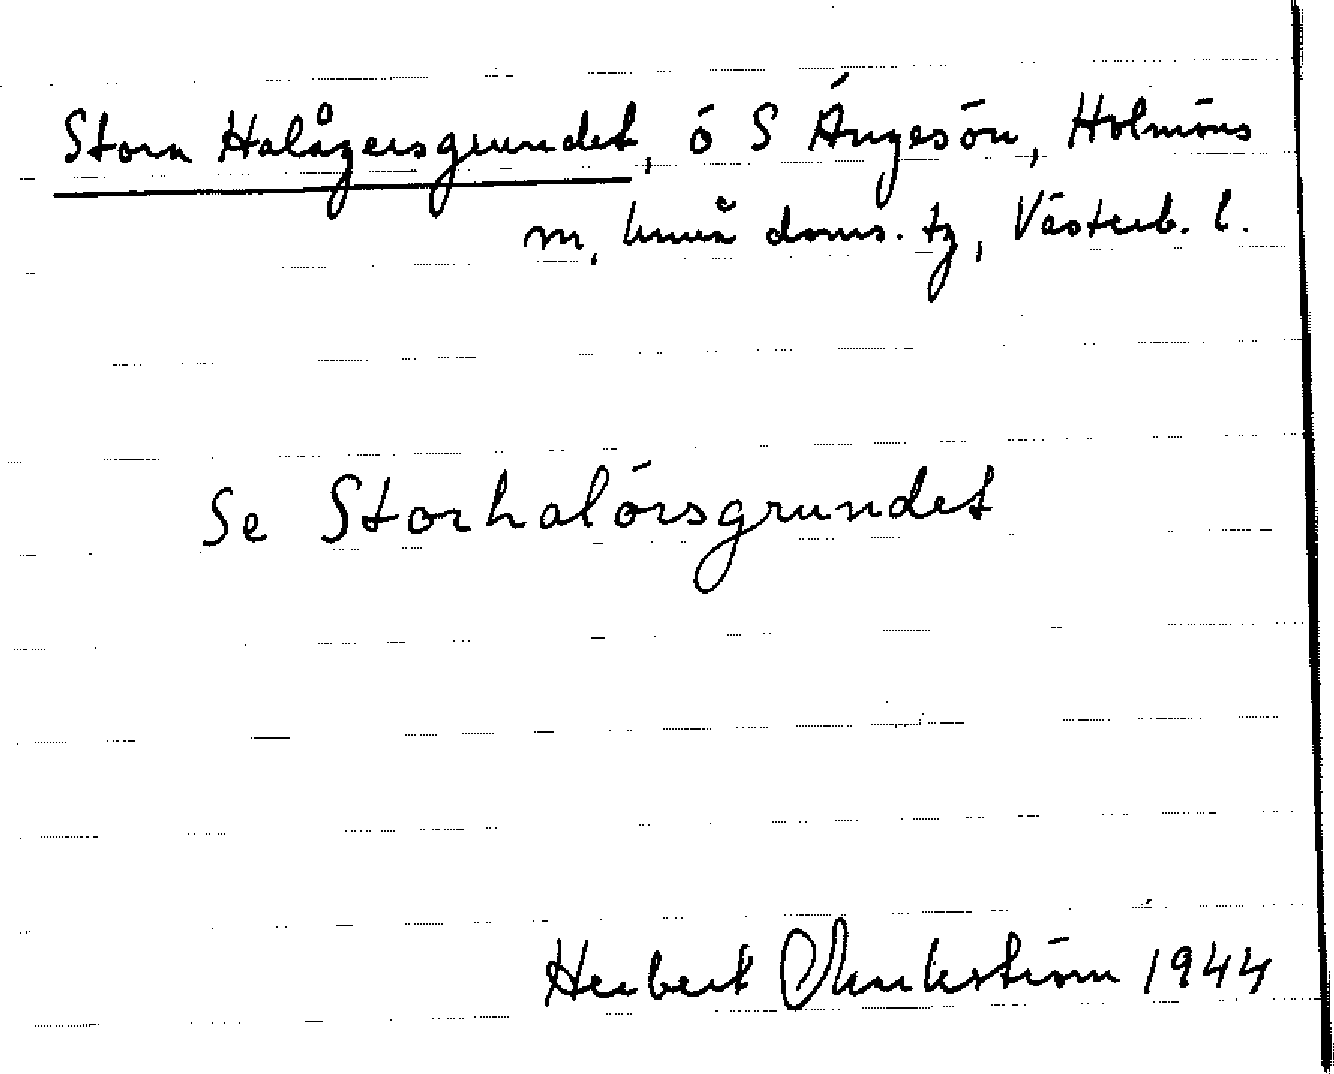 Stora Halågersgrundet, ö S Ängesön, Holmöns
m, Umeå doms. tg, Västerb. l.
Se Storhalörsgrundet
Herbert 1944